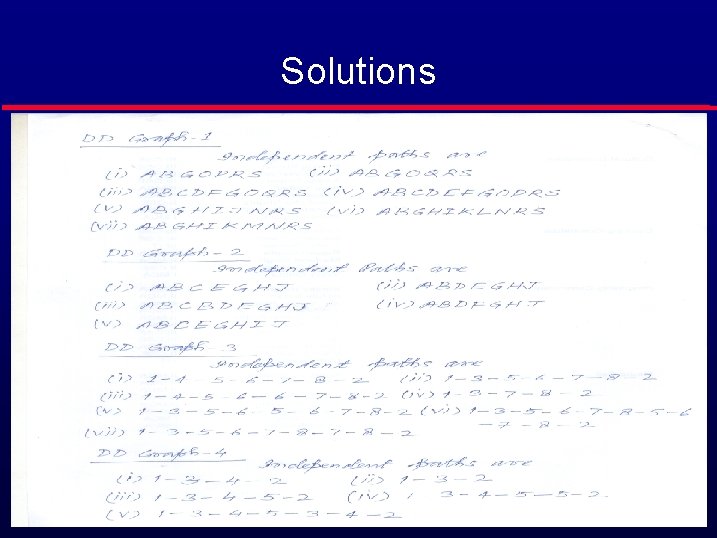 Solutions
DD Graph-1
Independent paths are
(i) ABGOPRS (ii) ABGOQRS
(iii) ABCDFGOQRS (iv) ABCDEFGOPRS
(v) ABGHIJNRS (vi) ABGHIKLNRS
(vii) ABGHIKMNRS
DD Graph-2
Independent Paths are
(i) ABCEGHJ (ii) ABDFGHJ
(iii) ABCBDFGHJ (iv) ABDFGHJ
(v) ABCEGHIJ
DD Graph 3
Independent paths are
(i) 1-4 5-6-7-8-2 (ii) 1-3-5-6-7-8 2
(iii) 1-4-5-6-6-7-8-2 (iv) 1-3-7-8-2
(v) 1-3-5-6 5-6-7-8-2 (vi) 1-3-5-6-7-8-5-6
-7-8-2
(vii) 1-3-5-6-7-8-7-8-2
DD Graph-4
Independent paths are
(i) 1-3-4-2 (ii) 1-3-2
(iii) 1-3-4-5-2 (iv) 3-4-5-5-2
(v) 1-3-4-5-3-4-2